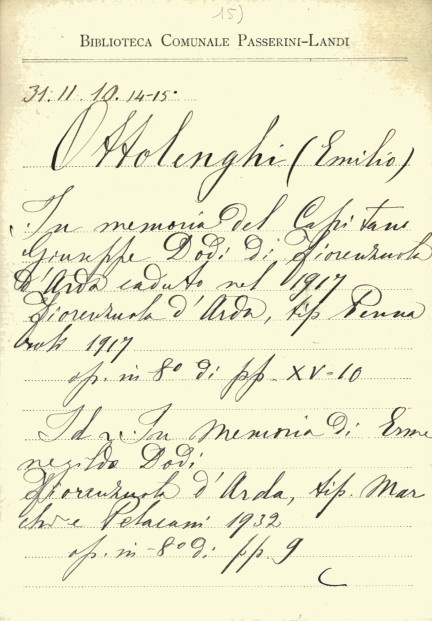 15)
BIBLIOTECA COMUNALE PASSERINI-LANDI
31. II. 10. 14-15.
Ottolenghi (Emilio)
In memoria del Capitano
Giuseppe Dodi di Fiorenzuola
d'Arda caduto nel 1917
Fiorenzuola d'Arda, tip Penna
roli 1917
op. in 8º di pp. XV-10
Id. In Memoria di Erme
negildo Dodi
Fiorenzuola d'Arda, tip. Mar
chi e Pelacani 1932
op. in-8º di pp. 9